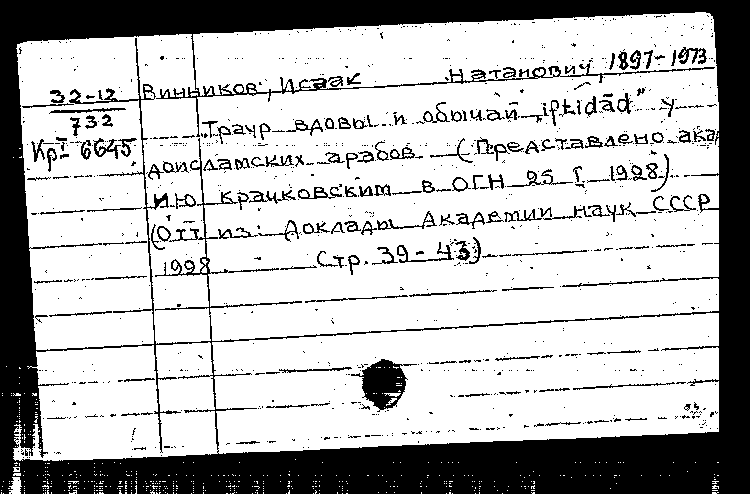 32-12
732
Крī 6645
Винников, Исаак Натанович, 1897-1973
Траур вдовы и обычай „iftidād" у
доисламских арабов (Представлено ака
Ию Крачковским в ОГН 25 I 1928)
(Отт из: Доклады Академии наук СССР
1928 Стр. 39-43)